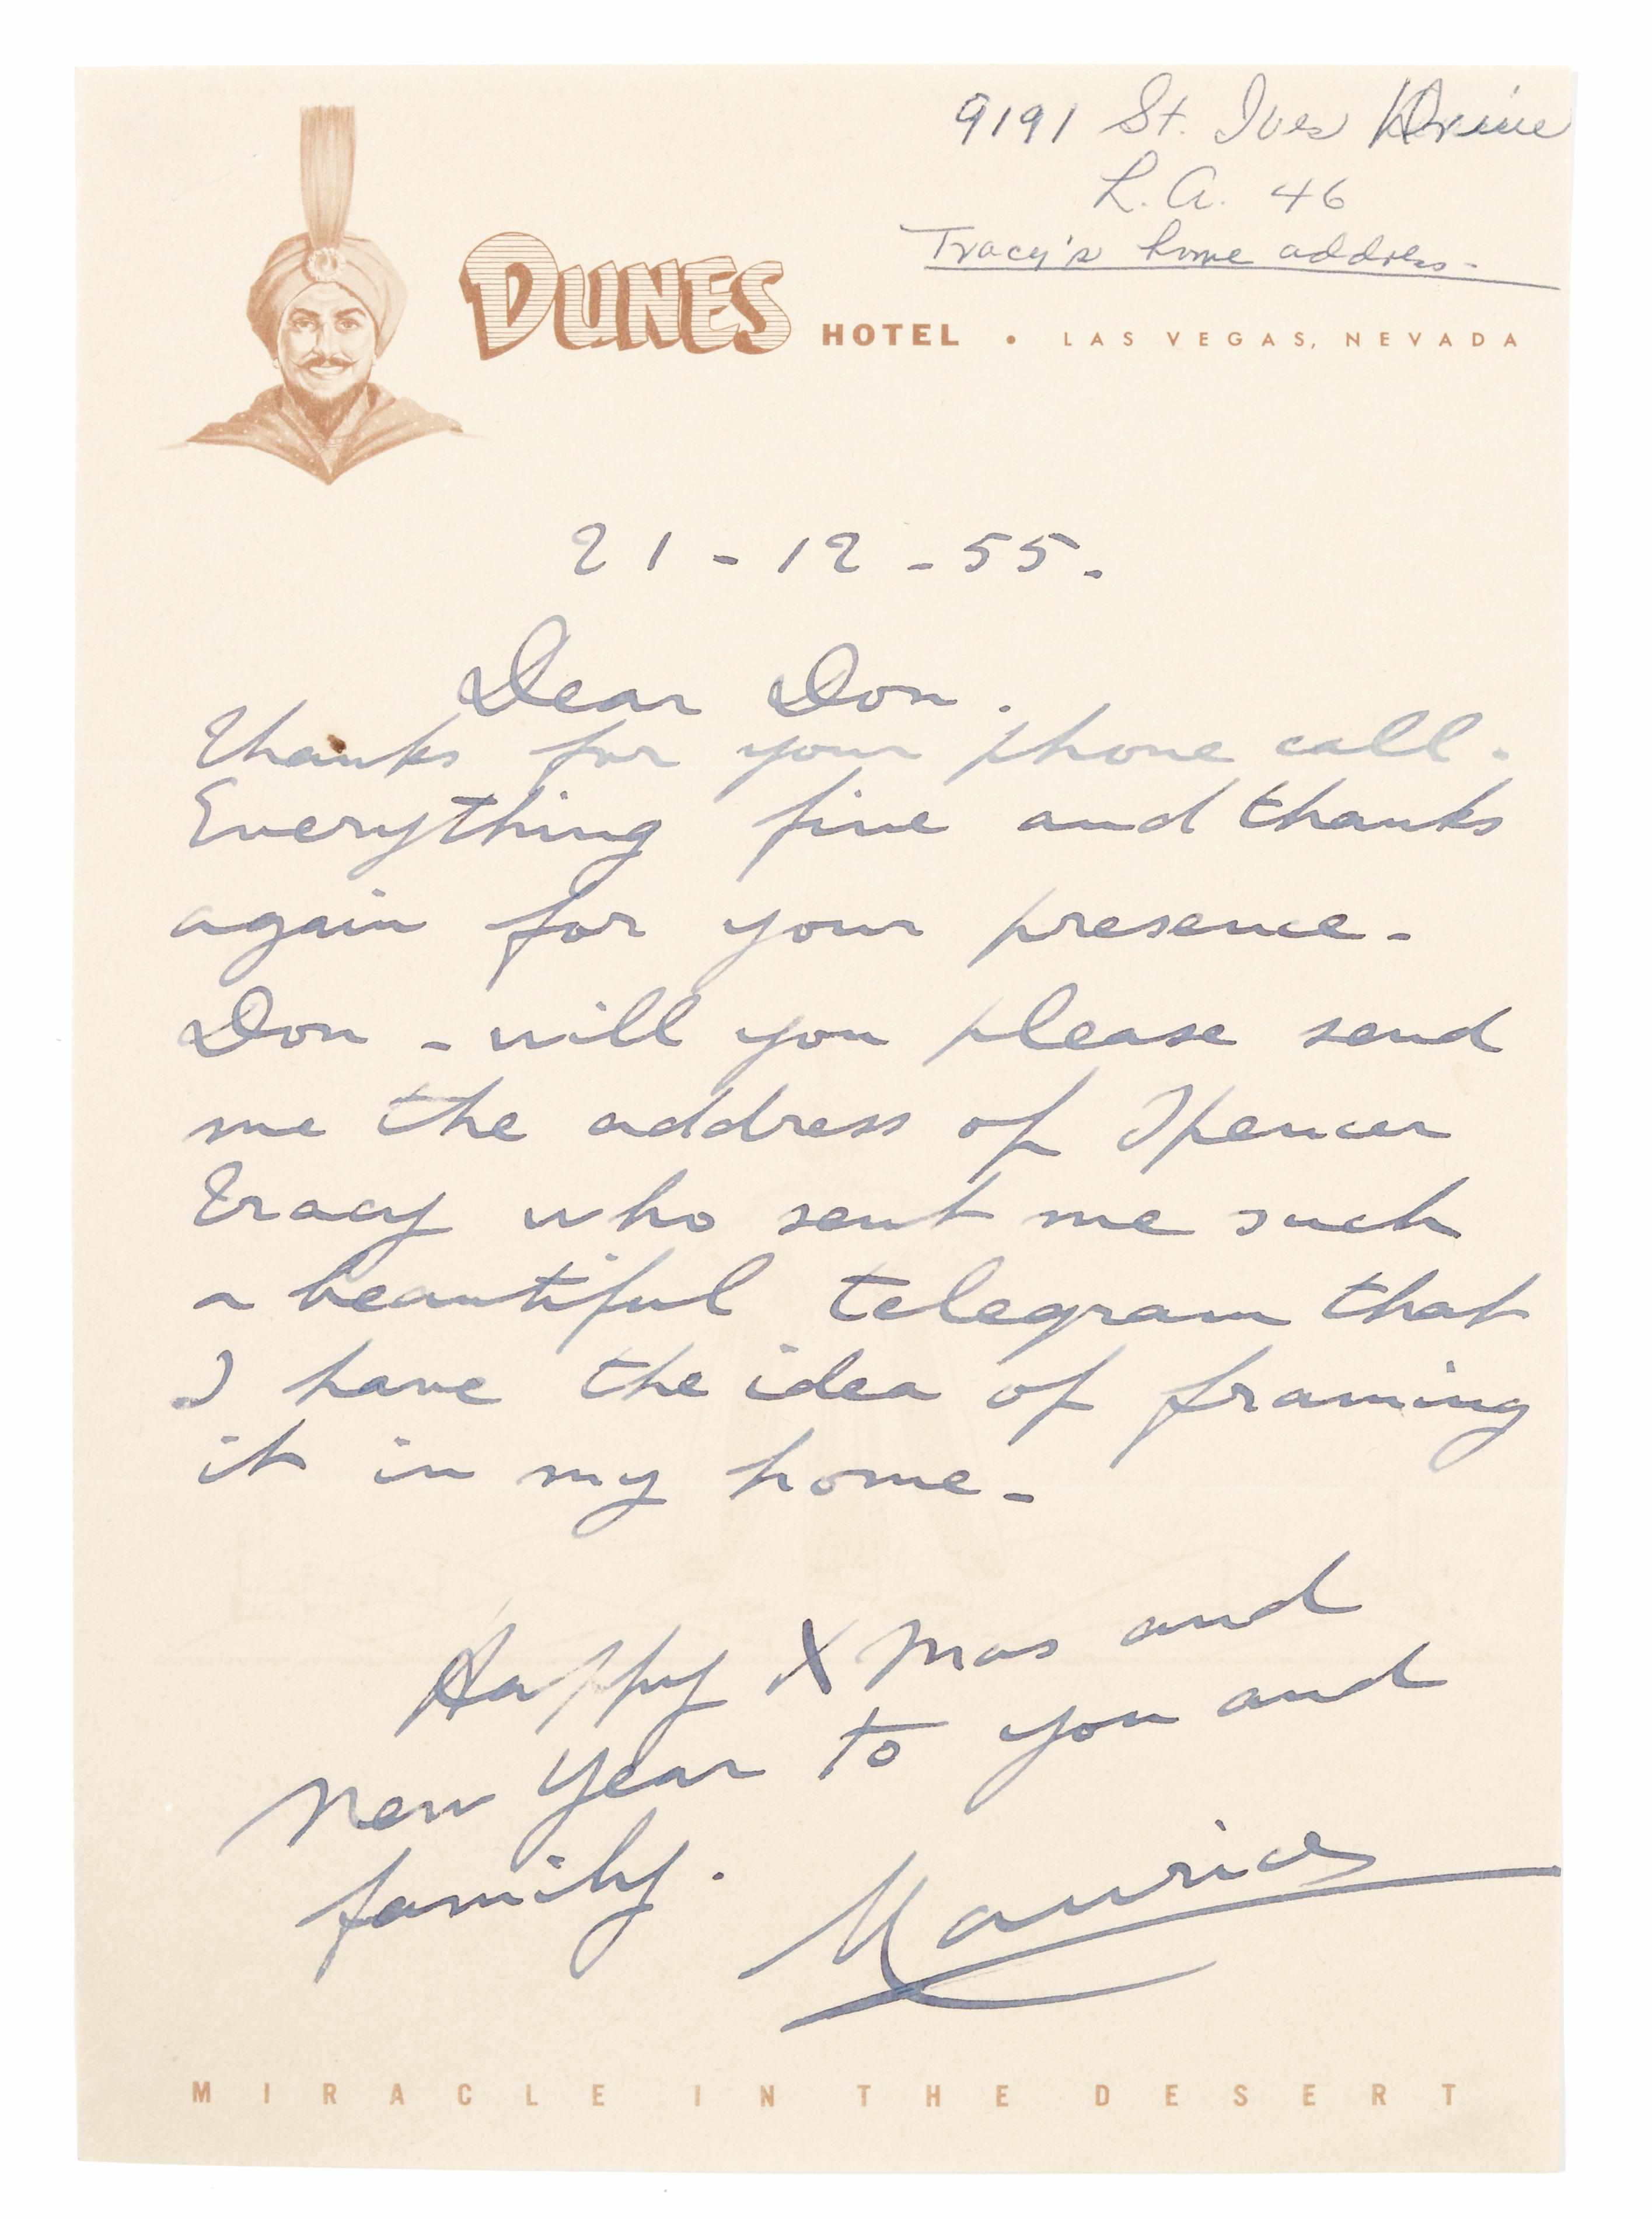 9191 St. Ives Drive
L.A. 46
Tracy's home address-
DUNES HOTEL • LAS VEGAS, NEVADA
21-12-55.
Dear Don.
Thanks for your phone call.
Everything fine and thanks
again for your presence-
Don - will you please send
me the address of Spencer
Tracy who sent me such
a beautiful telegram that
I have the idea of framing
it in my home-
Happy X Mas and
New Year to you and
family.
Maurice
MIRACLE IN THE DESERT